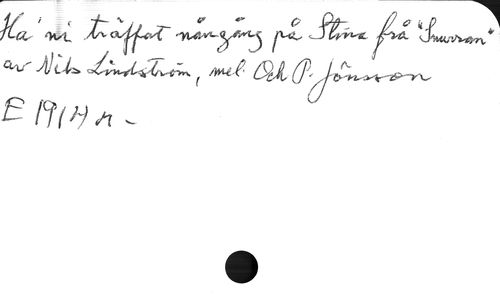 Ha' ni träffat nångång på Stina frå "Snurran"
av Nils Lindström, mel. Och P. Jönsson
E 19